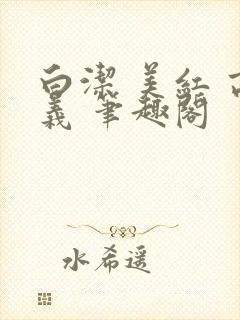 白潔 美紅 
義 筆趣閣
水希遥